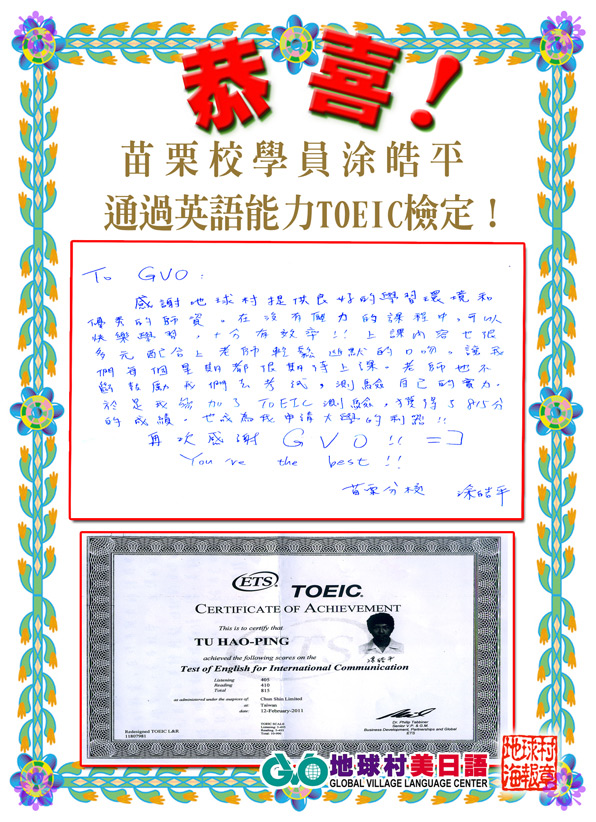 恭喜!
苗栗校學員涂皓平
通過英語能力TOEIC檢定！
To GVO:
感謝地球村提供良好的學習環境和
優秀的師資。在沒有壓力的課程中,可以
快樂學習,十分有效率!!上課內容也很
多元配合上老師輕鬆幽默的口吻。讓我
們每個星期都很期待上課。老師也不
斷鼓勵我們去考試,測驗自己的實力.
於是我參加了TOEIC測驗,獲得了815分
的成績。也成為我申請大學的利器!!
再次感謝 GVO!! =]
You're the best!!
苗栗分校 涂皓平
ETS TOEIC.
CERTIFICATE OF ACHIEVEMENT
This is to certify that
TU HAO-PING
achieved the following scores on the
涂皓平
Test of English for International Communication
Listening 405
Reading 410
Total 815
as administered under the auspices of: Chun Shin Limited
at: Taiwan
date: 12-February-2011
Dr. Philip Tabbiner
Senior V.P. & G.M.
Business Development, Partnerships and Global
ETS
Redesigned TOEIC L&R
11807981
TOEIC SCALE
GVO 地球村美日語
GLOBAL VILLAGE LANGUAGE CENTER
地球村
海報章